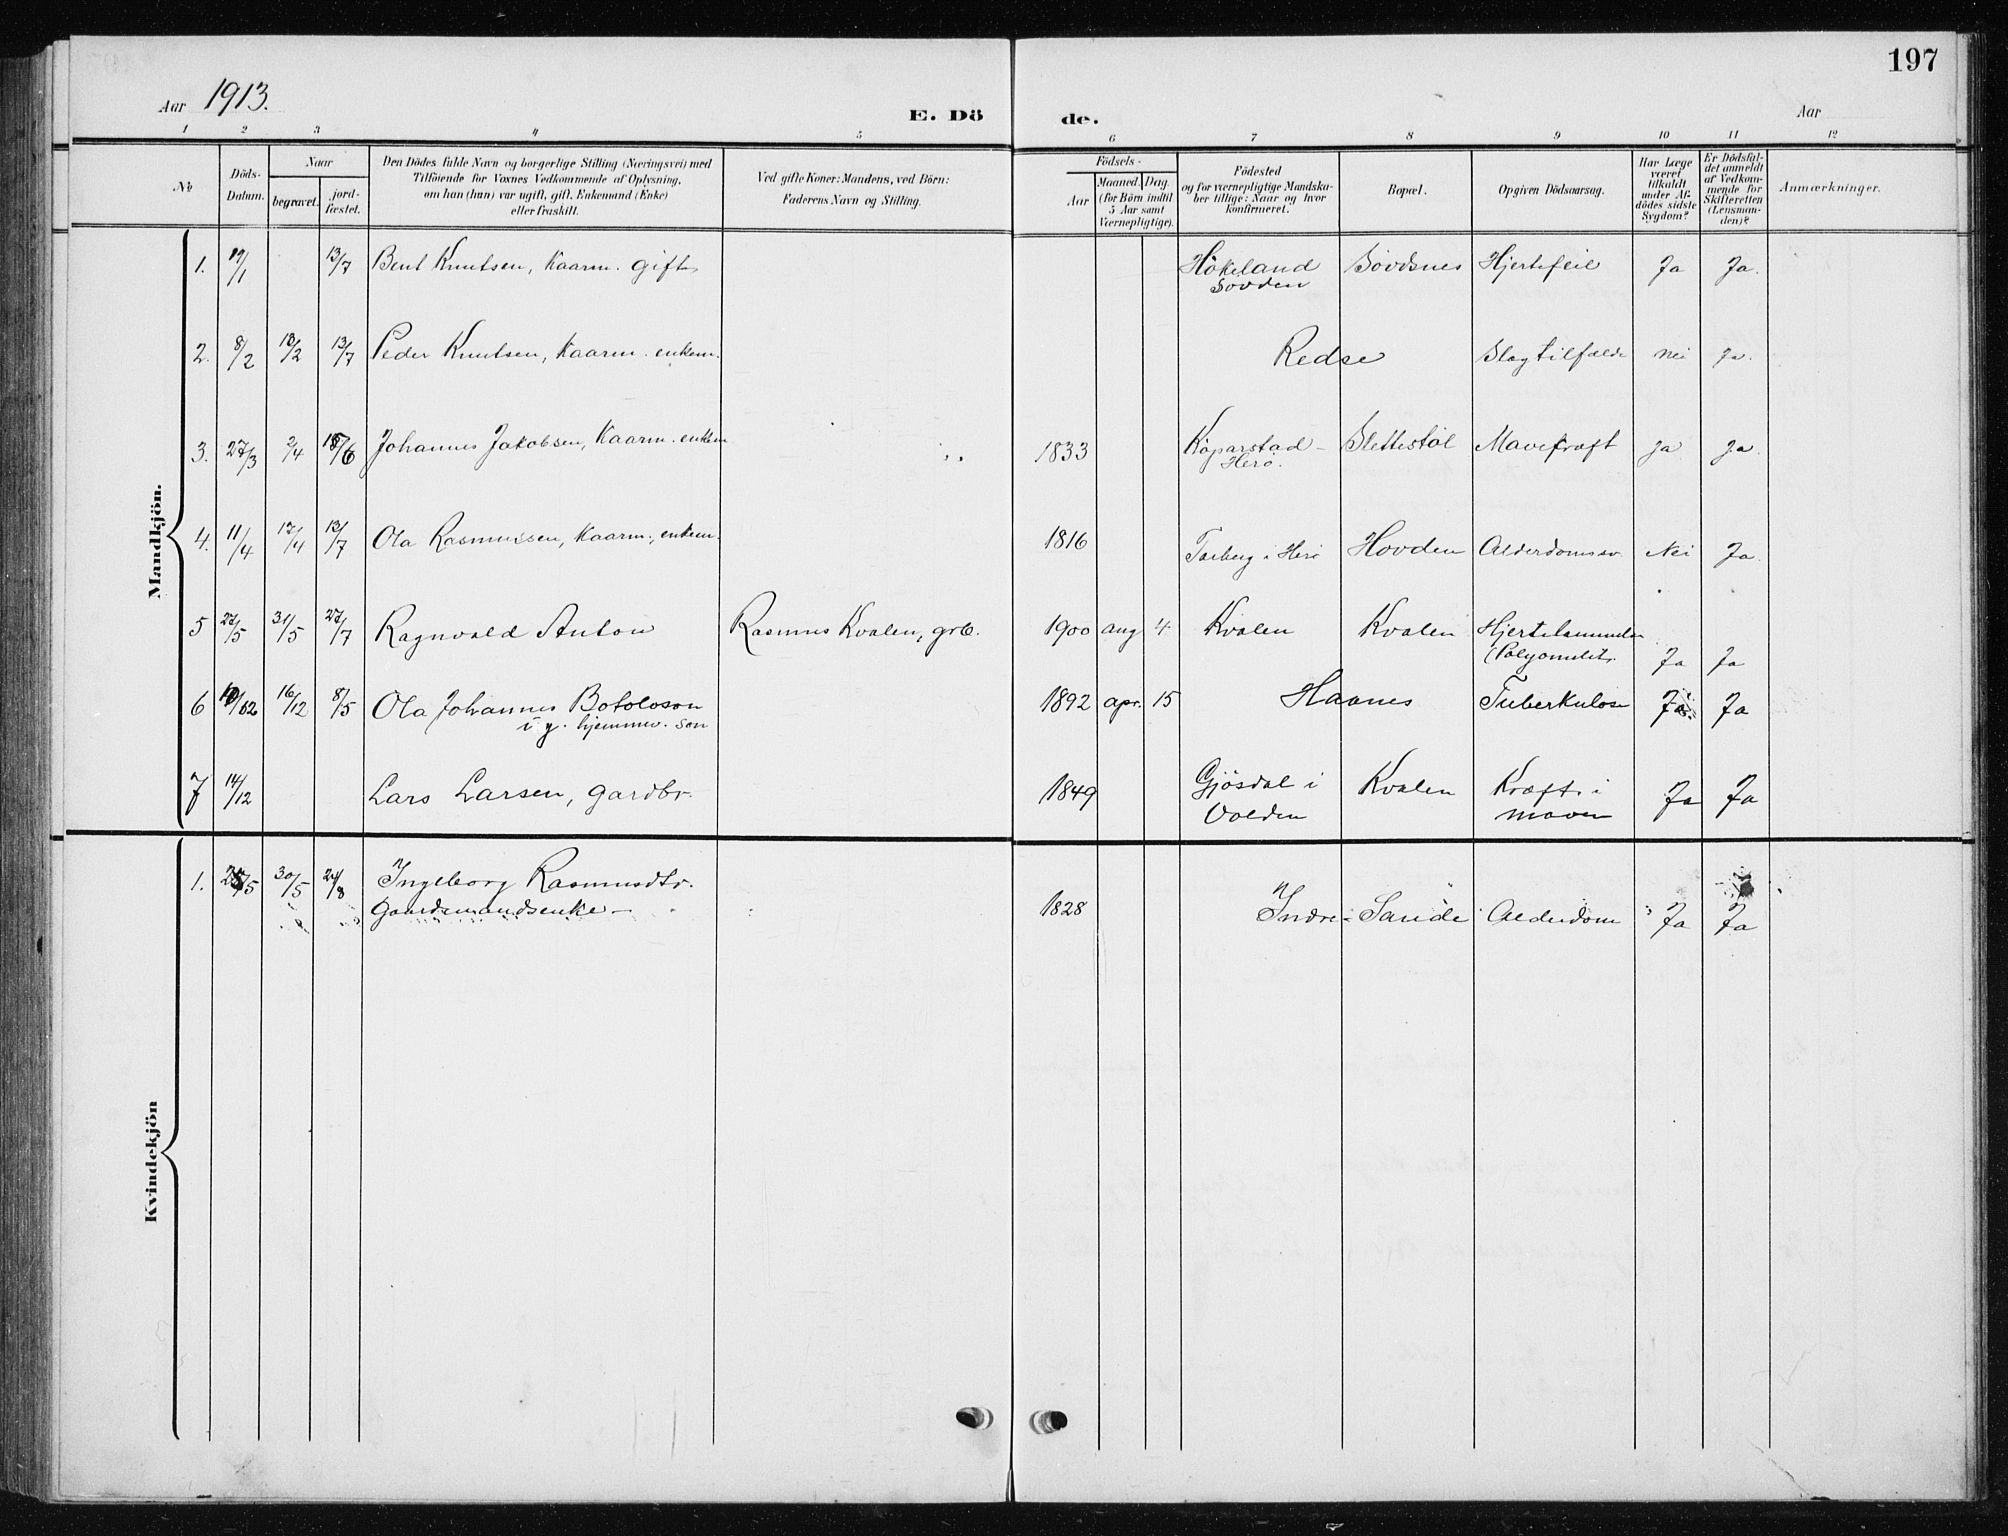 197
Aar 1913.
E. Dö
de.
Aar
1 2 3 4 5 6 7 8 9 10 11 12
№
Döds-
Datum.
Naar
begravet.
jord-
fæstet.
Den Dödes fulde Navn og borgerlige Stilling (Næringsvei) med
Tilföiende for Voxnes Vedkommende af Oplysning,
om han (hun) var ugift, gift, Enkemand (Enke)
eller fraskilt.
Ved gifte Koner: Mandens, ved Börn:
Faderens Navn og Stilling.
Födsels-
Aar
Maaned. Dag.
(for Börn indtil
5 Aar samt
Værnepligtige).
Födested
og for værnepligtige Mandska-
ber tillige: Naar og hvor
konfirmeret.
Bopæl.
Opgiven Dödsaarsag.
Har Læge
været
tilkaldt
under Af-
dödes sidste
Sygdom?
Er Dödsfal-
det anmeldt
af Vedkom-
mende for
Skifteretten
(Lensman-
den)?
Anmærkninger.
Mandkjön.
1. 13/7 Bent Knutsen, Kaarm. gift Hökeland Sövdsnes Hjertefeil Ja Ja.
Sövden
2. 8/2 18/2 13/7 Peder Knutsen, Kaarm. enkem. Redse Slagtilfælde Nei Ja.
3. 27/3 2/4 Johannes Jakobsen, Kaarm. enkem 1833 Koparstad - Slettestöl Mavekræft Ja Ja.
Herö.
4. 11/4 17/4 13/7 Ola Rasmussen, Kaarm., enkem. 1816 Tarberg i Herö Hovden Alderdomssv. Nei Ja.
5 27/5 31/5 27/7 Ragnvald Anton Rasmus Kvalen, grb. 1900 aug 4 Kvalen Kvalen Hjertelammelse
Ja Ja
6 16/12 8/5 Ola Johannes Botolvson 1892 apr. 15 Haanes Tuberkulose Ja Ja
i g. hjemmev. søn
7 14/12 Lars Larsen, gardbr. 1849 Gjösdal i Kvalen Kræft i Ja Ja
Volden maven
Kvindekjön
1. 30/5 24/8 Ingeborg Rasmusdtr. 1828 Indre-Sande Alderdom Ja Ja
gaardmandsenke -